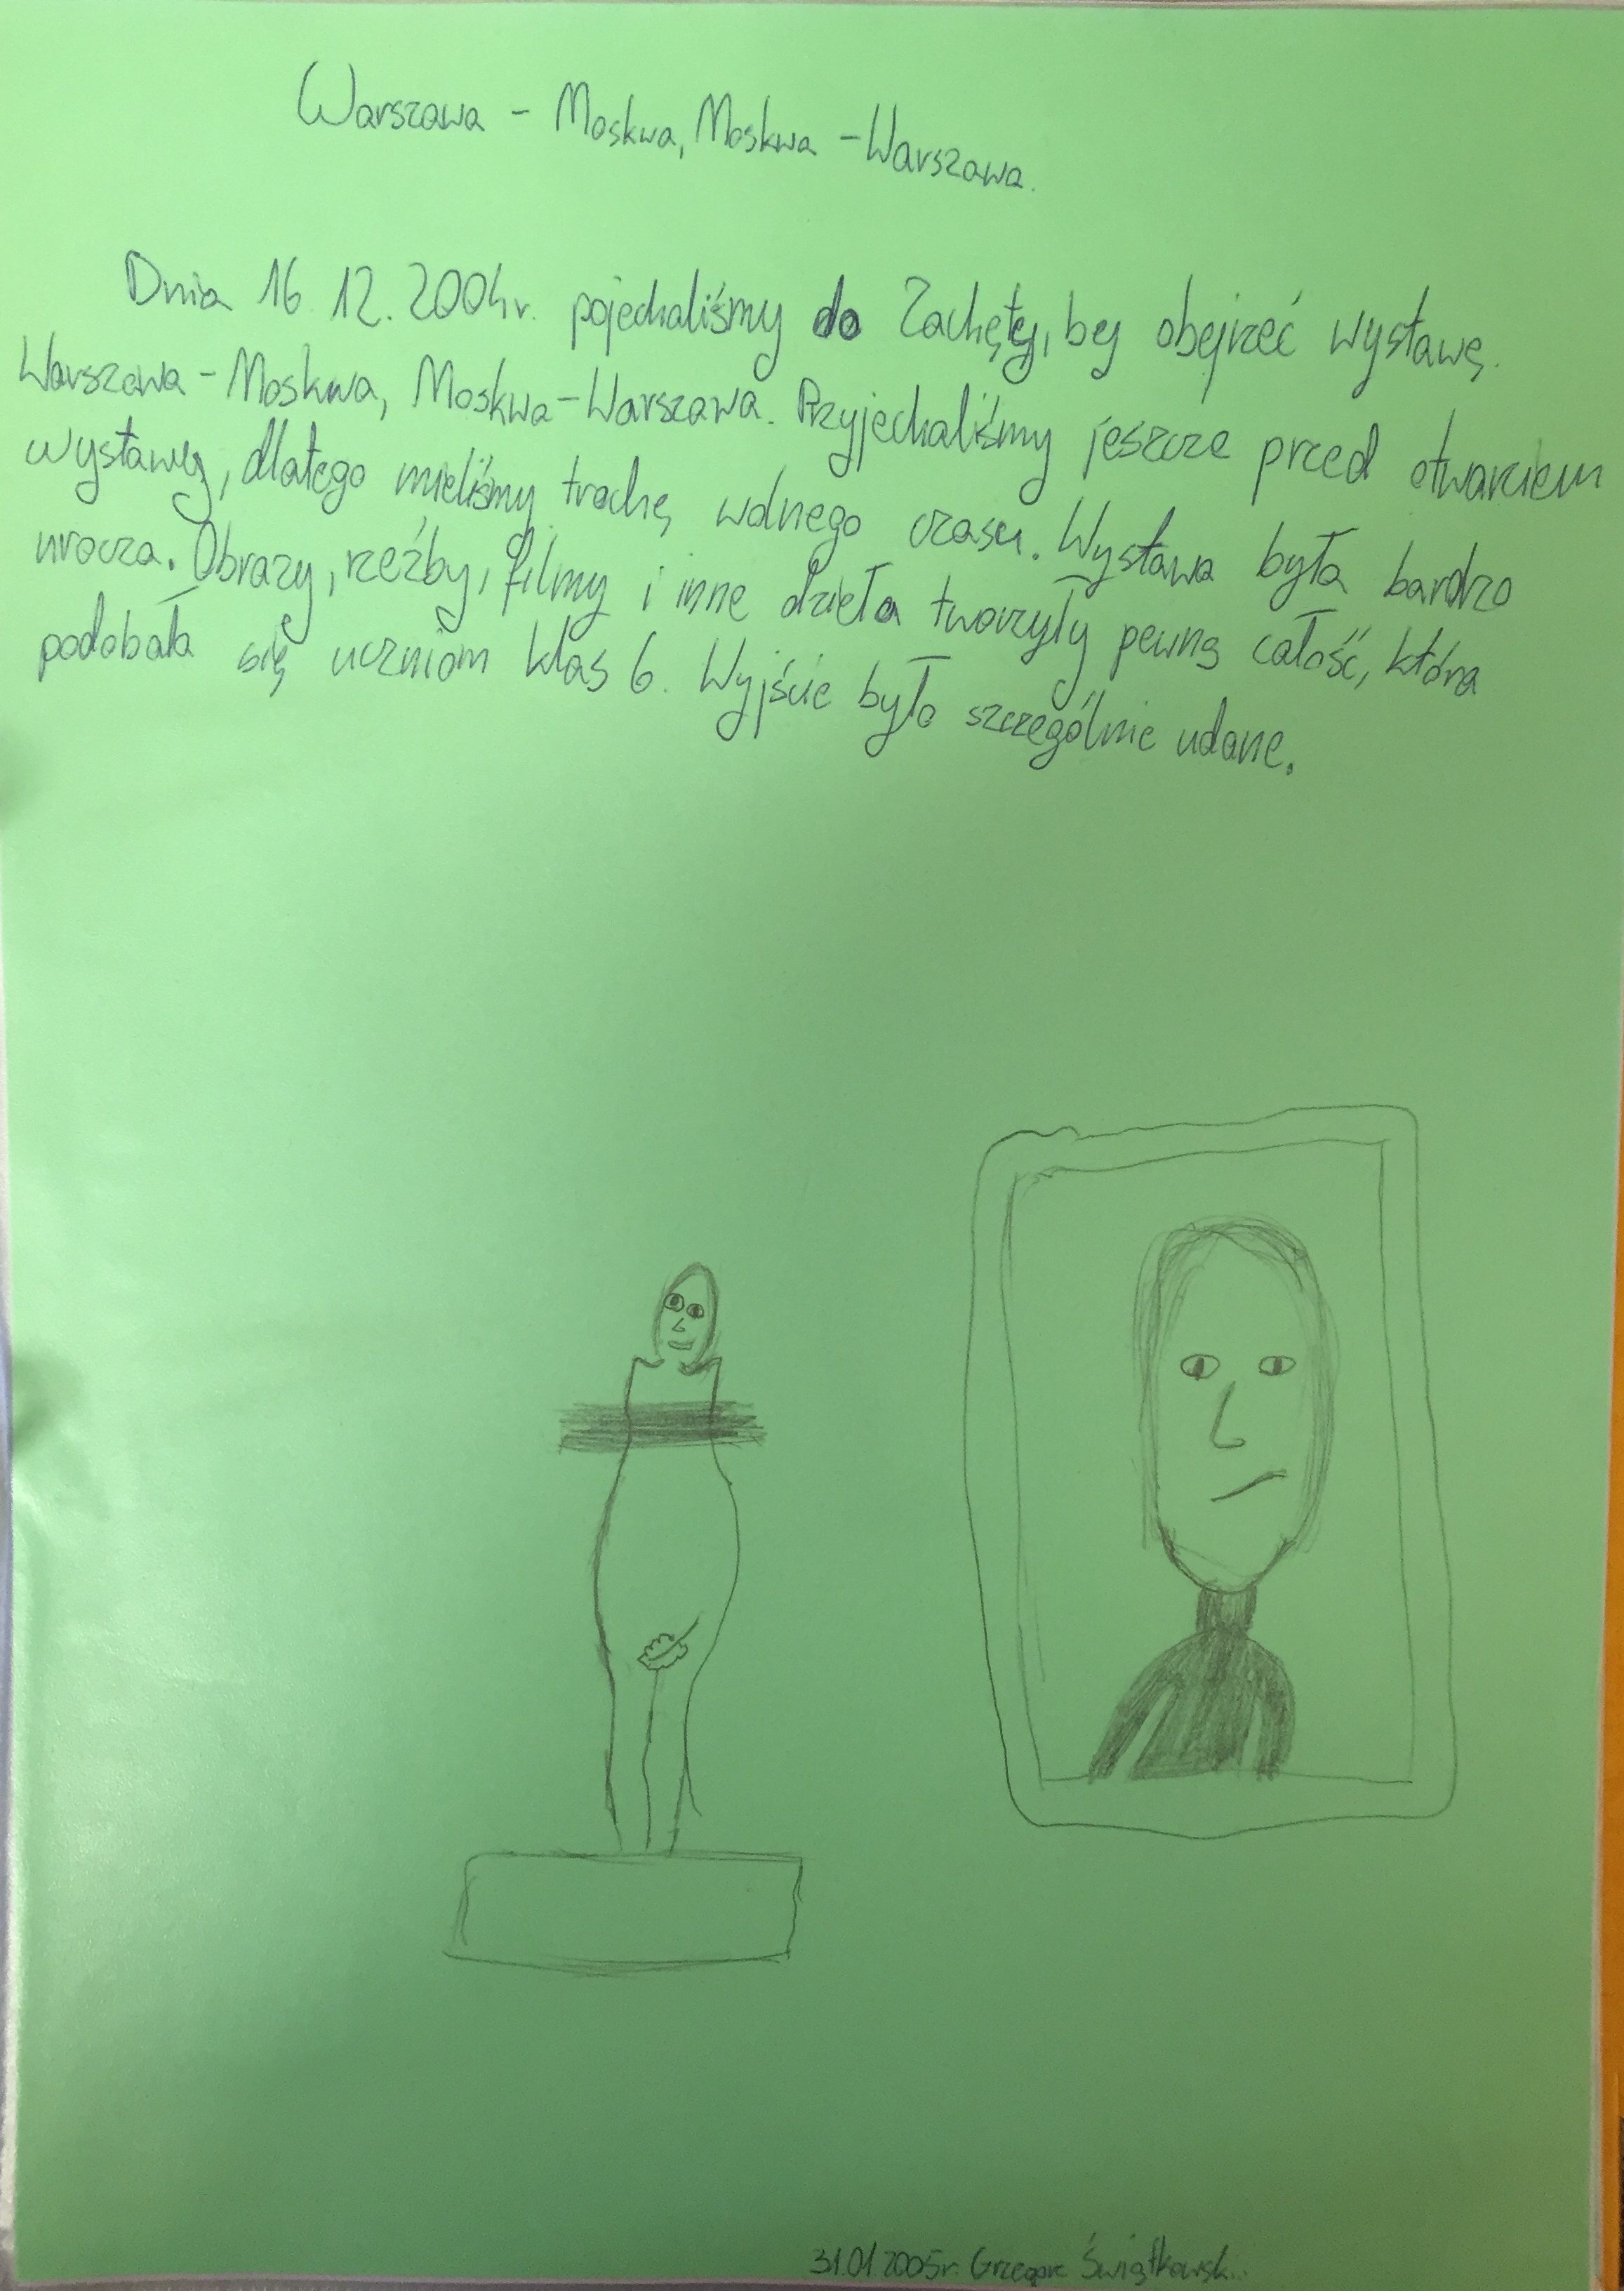 Warszawa - Moskwa, Moskwa - Warszawa.
Dnia 16.12.2004r. pojechaliśmy do Zachęty, by obejrzeć wystawę.
Warszawa - Moskwa, Moskwa - Warszawa. Przyjechaliśmy jeszcze przed otwarciem
wystawy, dlatego mieliśmy trochę wolnego czasu. Wystawa była bardzo
urocza. Obrazy, rzeźby, filmy i inne dzieła tworzyły pewną całość, która
podobała się uczniom klas 6. Wyjście było szczególnie udane.
31.01.2005r. Grzegorz Świątkowski